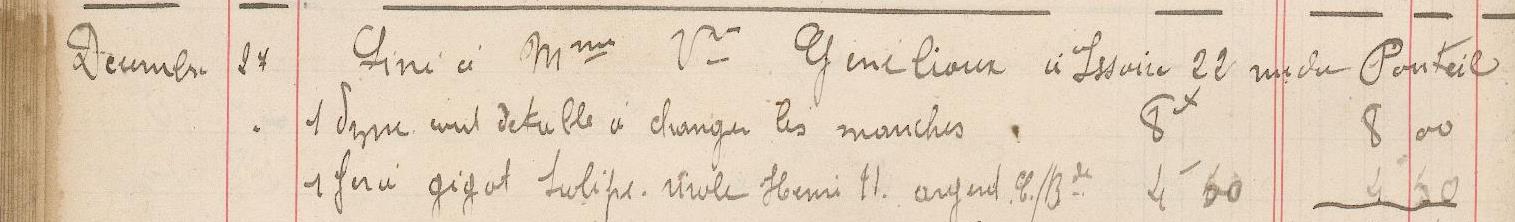 Decembre 24 Livré à Mme Vve Genilioux à Issoire 22 rue du Ponteil
1 Dzne cout de table à changer les manches . 8 8 00
1 gigot tulipe virole Henri II. argent 4 60 4 60